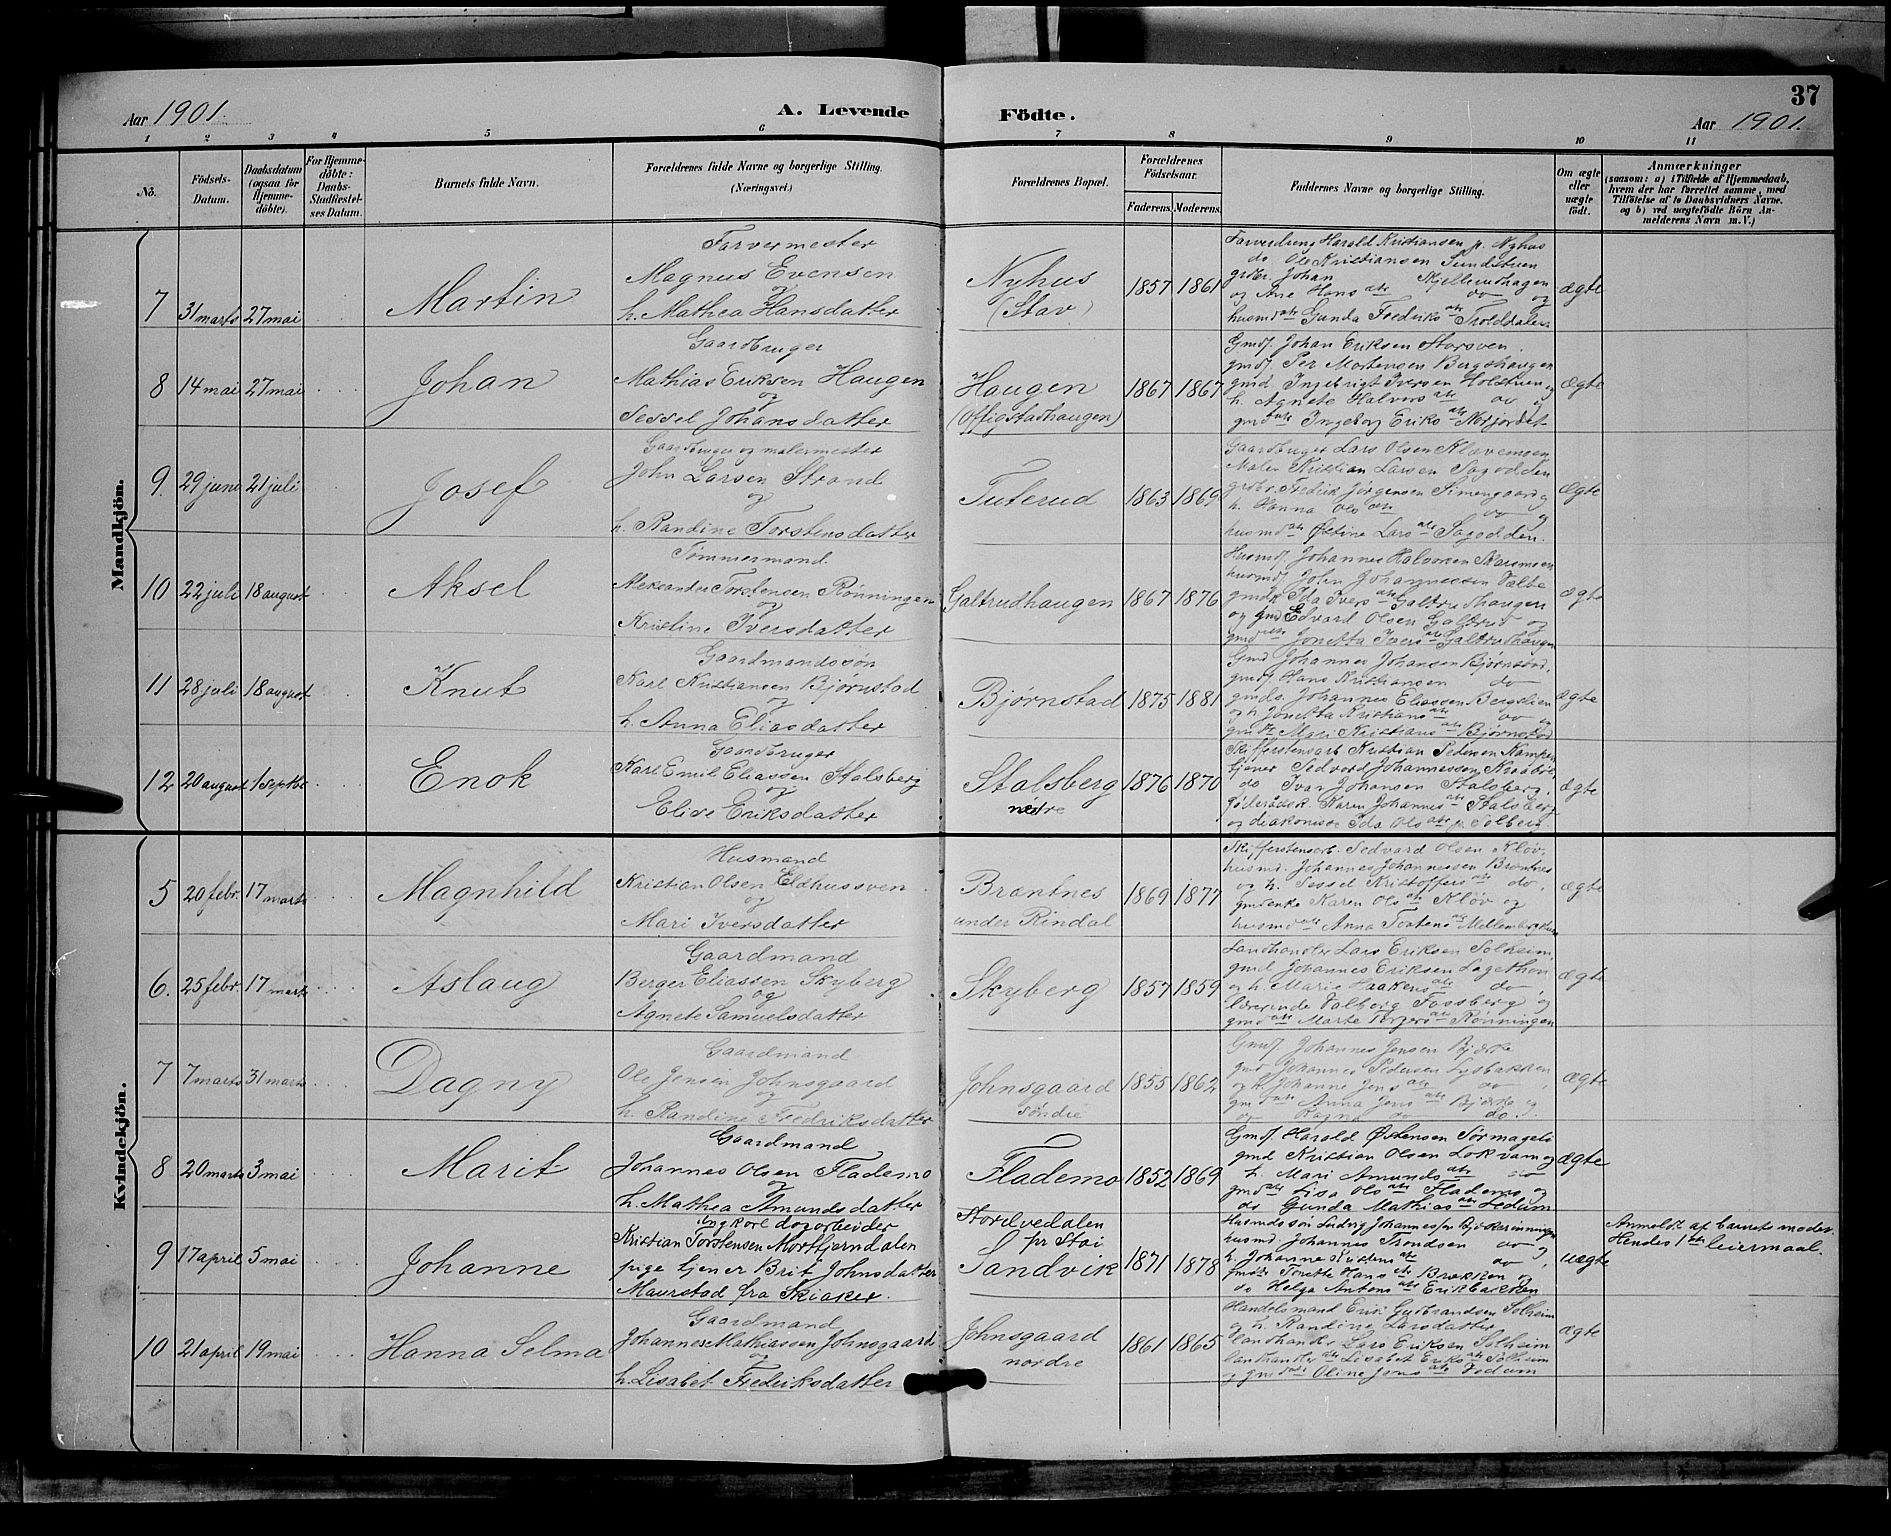 37
Aar 1901. A. Levende Födte. Aar 1901.
1 2 3 4 5 6 7 8 9 10 11
No.
Födsels-Datum.
Daabsdatum (ogsaa for Hjemme-döbte).
For Hjemme-döbte: Daabs-Stadfæstel-ses Datum.
Barnets fulde Navn.
Forældrenes fulde Navne og borgerlige Stilling. (Næringsvei.)
Forældrenes Bopæl.
Forældrenes Födselsaar.
Faderens. Moderens.
Faddernes Navne og borgerlige Stilling.
Om ægte eller uægte födt.
Anmærkninger
(saasom: a) i Tilfælde af Hjemmedaab,
hvem der har forrettet samme, med
Tilföielse af to Daabsvidners Navne,
og b) ved uægtefödte Börn An-
melderens Navn m. V.)
Mandkjön.
7 31 marts 27 mai Martin
Farvermester
Magnus Evensen
og
h. Mathea Hansdatter
Nyhus
(Stav)
1857 1861
Farverdreng Harald Kristiansen p. Nyhus
do Ole Kristiansen Sundstuen
grdbr. Johan Kjellerudhagen
og Ane Hans dtr do og
husmd dtr Gunda Fredriks dtr Trolddalen
ægte
8 14 mai 27 mai Johan
Gaardbruger
Mathias Eriksen Haugen
og
Sessel Johansdatter
Haugen
(Offigstadhaugen)
1867 1867
Gmdf. Johan Eriksen Storsven.
gmdf. Per Mortensen Bergshaugen
gmd. Ingebrigt Iversen Holstuen
h. Agnete Halvors dtr do og
gmd dtr Ingeborg Eriks dtr Nerjordet
ægte
9. 29 juni 21 juli Josef
Gaardbruger og malermester
John Larsen Strand
og
h. Randine Torstensdatter
Tuterud
1863 1869
Gaardbruger Lars Olsen Kløvemoen
Maler Kristian Larsen Sagodden
grdbr. Fredrik Jørgensen Simengaard og
h. Hanna Ols dtr do og
husmd dtr Østine Lars dtr Sagodden.
ægte
10 22 juli 18 august Aksel
Tømmermand.
Aleksander Torstensen Rønningen
og
Kristine Iversdatter
Galtrudhaugen
1867 1876
Husmdf. Johannes Halvorsen Skarsmoen
husmdf. John Johannessen Vælte
gmdk Ida Ivers dtr Galtrudhaugen
og gmd Edvard Olsen Galtrud og
gmd dtr Jonetta Ivers dtr Galtrudhaugen
ægte
11 28 juli 18 august Knut
Gaardmandssøn
Karl Kristiansen Bjørnstad
og
h. Anna Eliasdatter
Bjørnstad
1875 1881
Gmd Johannes Johansen Bjørnstad,
gmdf. Hans Kristiansen do
gmds. Johannes Eliassen Bergslien
og h. Jonetta Kristians dtr do og
gmd dtr Mari Kristians dtr Bjørnstad
ægte
12 20 august 1 septbr Enok
Gaardbruger
Karl Emil Eliassen Stalsberg
og
Elise Eriksdatter
Stalsberg
nedre
1876 1870
Skifferstensarb Kristian Pedersen
tjener Sedvard Johannessen Kraabøl,
do Ivar Johansen Stalsberg,
føderaadsk. Karen Johannes dtr Stalsberg
og diakonisse Ida Ols dtr p. Solberg
ægte
Kvindekjön.
5 20 febr. 17 marts Magnhild
Husmand
Kristian Olsen Eldhussven
og
Mari Iversdatter
Brantnes
under Rindal
1869 1877
Skifferstensarb. Sedvard Olsen Kløv,
husmd. Johannes Johannessen Brantnes
og h. Sessel Kristoffers dtr do,
gmdenke Karen Ols dtr Kløv og
husmd dtr Anna
ægte
6. 25 febr. 17 marts Aslaug
Gaardmand
Berger Eliassen Skyberg
og
Agnete Samuelsdatter
Skyberg
1857 1859
Landhandler Lars Eriksen Solheim,
gmd Johannes Eriksen
og h. Marie Haakens dtr do,
lærerinde Valborg Fossberg og
gmd dtr Marte Børgers dtr Rønningen
ægte
7 7 marts 31 marts Dagny
Gaardmand
Ole Jensen Johnsgaard
og
h. Randine Fredriksdatter
Johnsgaard
søndre
1855 1862
Gmdf. Johannes Jensen Bjærke
gmd Johannes Pedersen Lysbakken
og h. Johanne Jens dtr do,
gmd dtr Anna Jens dtr Bjærke og
og Ragna do do.
ægte
8 20 marts 3 mai Marit
Gaardmand
Johannes Olsen Flademo
og
h. Mathea Amundsdatter
Flademo
1852 1869
Gmdf. Harald Østensen Sørmageli
gmd Kristian Olsen Lokvam og
h. Mari Amunds dtr do
gmd dtr Lisa Ols dtr Flademo og
do Gunda Mathias dtr Sedum
ægte
9 17 april 5 mai Johanne
Ungkarl dagarbeider
Kristian Torstensen Morttjerndalen
pige tjener Brit Johnsdatter
Maurstad fra Skiaker.
Stordvedalen
pr Stai
Sandvik
1871 1878
Husmdssøn Ludvig Johannes. pr Bjøkerønningen
husmd. Johannes Trondsen do og
h. Johanne dtr do,
gmd dtr Tonette Hans dtr Brækken og
do Helga Antons dtr Erikbakken
uægte
Anmeldt af barnets moder.
Hendes 1ste leiermaal.
10 21 april 19 mai Hanna Selma
Gaardmand
Johannes Mathiassen Johnsgaard
og
h. Lisabet Fredriksdatter
Johnsgaard
nordre
1861 1865
Handelsmand Erik Gudbrandsen Solheim
og h. Randine Larsdatter
landhandler Lars Eriksen Solheim
landhandler dtr Lisabet Eriks dtr Solheim
og gmd dtr Oline Jens dtr Vedum
ægte